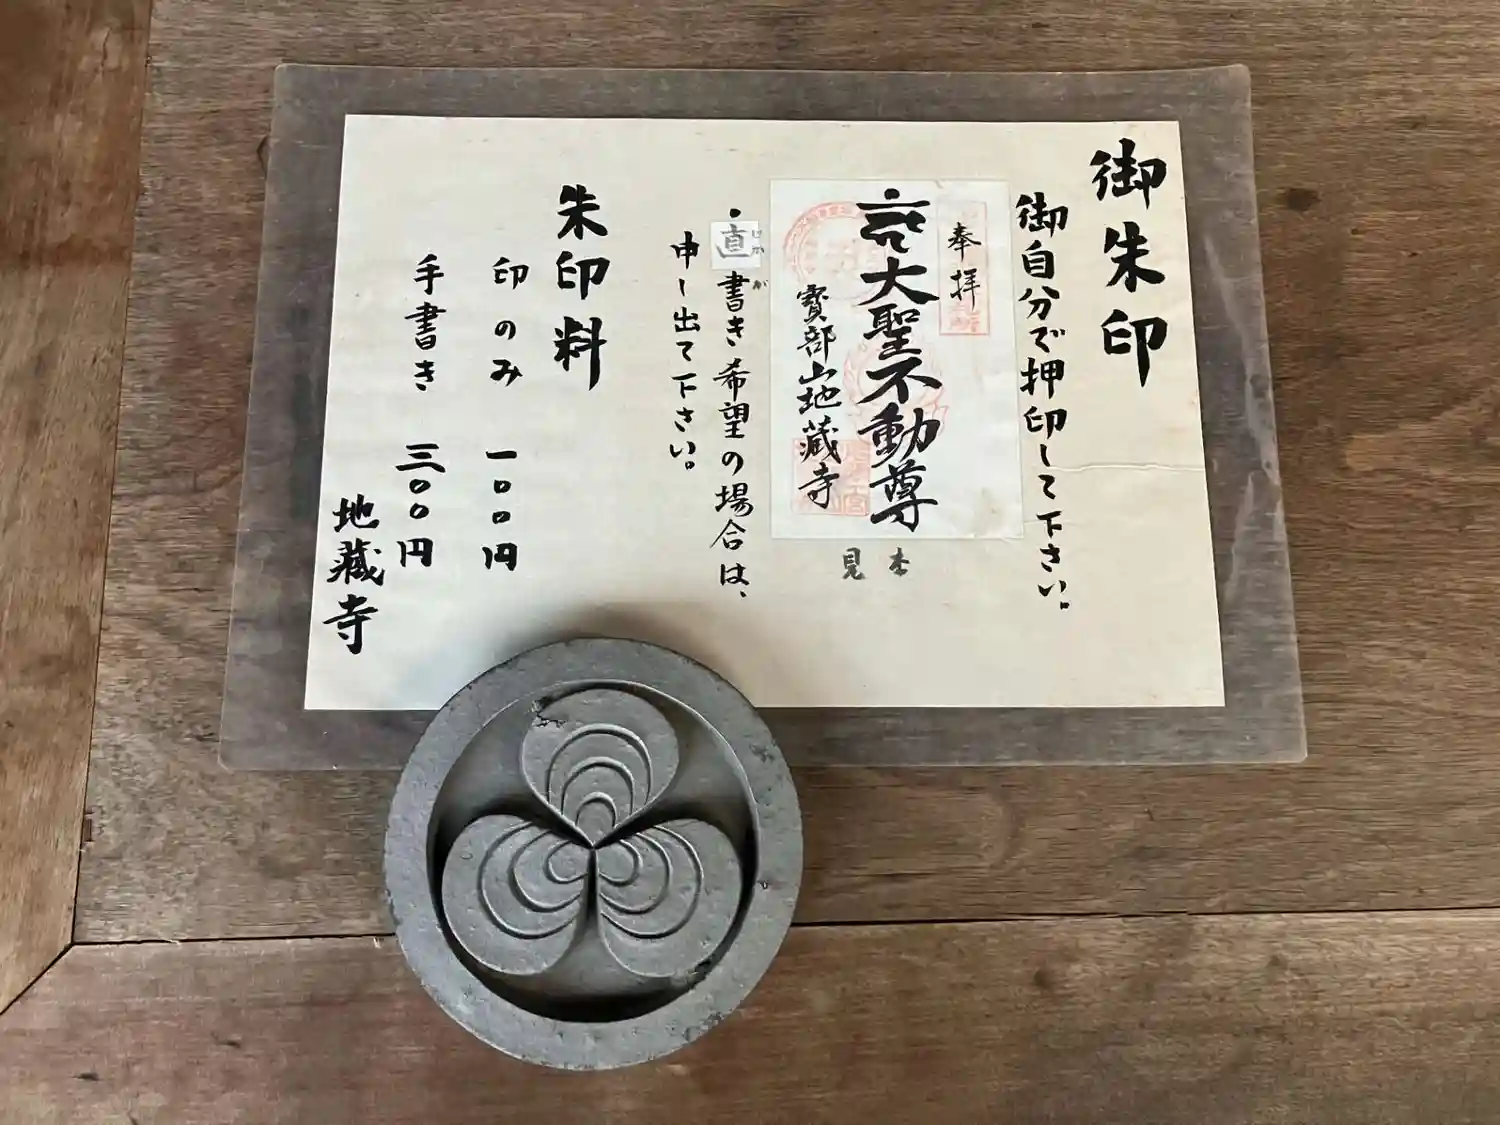 御朱印
御自分で押印して下さい。
奉拝
大聖不動尊
寳部山地蔵寺
見本
・直書き希望の場合は、
じか が
申し出て下さい。
朱印料
印のみ 一〇〇円
手書き 三〇〇円
地蔵寺